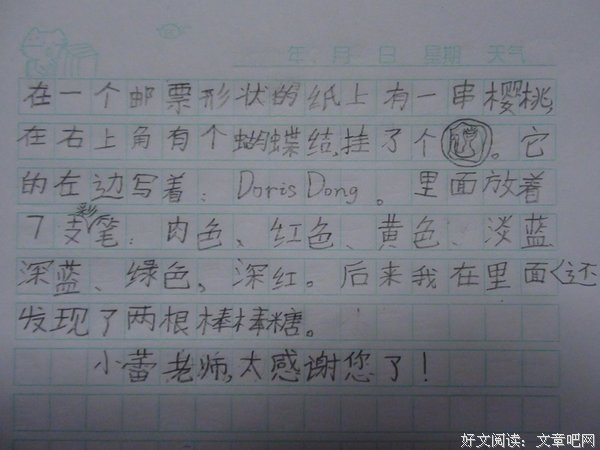 年 月 日 星期 天气
在一个邮票形状的纸上有一串樱桃,
在右上角有个蝴蝶结,挂了个 。它
的左边写着:Doris Dong。里面放着
7支彩笔:肉色、红色、黄色、淡蓝
深蓝、绿色,深红。后来我在里面还
发现了两根棒棒糖。
小蕾老师,太感谢您了!
好文阅读:文章吧网